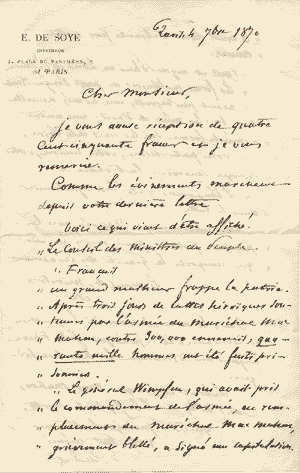 E. DE SOYE
IMPRIMEUR
2, PLACE DU PANTHÉON, 2
A PARIS
Paris, 4 7bre 1870
Cher Monsieur,
je vous accuse réception de quatre
cent cinquante francs et je vous
remercie.
Comme les évènements marchent
depuis votre dernière lettre
Voici ce qui vient d'être affiché:
"Le Conseil des ministres au peuple.
" Français
" un grand malheur frappe la patrie.
" Après trois jours de luttes héroïques sou-
" tenues par l'armée du maréchal Mac
" Mahon, contre 300,000 ennemis, qua-
" rante mille hommes ont été faits pri-
" sonniers.
" Le général Wimpfen, qui avait pris
" le commandement de l'armée, en rem-
" placement du maréchal Mac Mahon,
" grièvement blessé, a signé une capitulation.